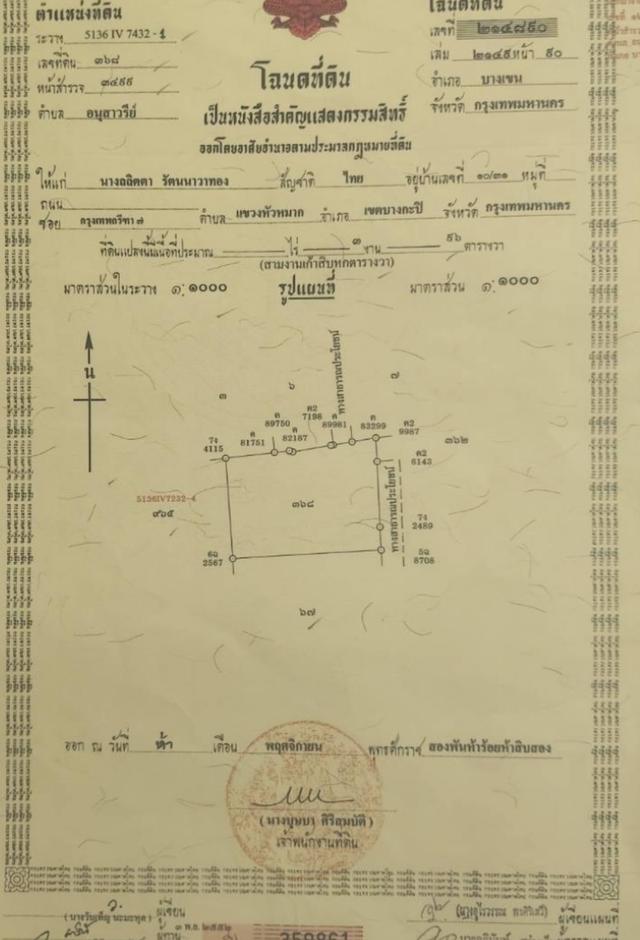 ตำแหน่งที่ดิน
โฉนดที่ดิน
ระวาง 5136 IV 7432 - 1
เลขที่ ๒๑๔๘๙๐
เลขที่ดิน ๓๖๘
เล่ม ๒๑๔๙ หน้า ๙๐
หน้าสำรวจ ๓๔๙๙
อำเภอ บางเขน
ตำบล อนุสาวรีย์
จังหวัด กรุงเทพมหานคร
โฉนดที่ดิน
เป็นหนังสือสำคัญแสดงกรรมสิทธิ์
ออกโดยอาศัยอำนาจตามประมวลกฎหมายที่ดิน
ให้แก่ นางถลิตตา รัตนนาวาทอง สัญชาติ ไทย อยู่บ้านเลขที่ ๑๐/๓๑ หมู่ที่
ถนน
ซอย กรุงเทพกรีฑา ๗ ตำบล แขวงหัวหมาก อำเภอ เขตบางกะปิ จังหวัด กรุงเทพมหานคร
ที่ดินแปลงนี้มีเนื้อที่ประมาณ ไร่ ๓ งาน ๙๖ ตารางวา
(สามงานเก้าสิบหกตารางวา)
มาตราส่วนในระวาง ๑:๑๐๐๐ รูปแผนที่ มาตราส่วน ๑:๑๐๐๐
น
๓
๖
ทางสาธารณประโยชน์
๗
ค
89750
ค2
7198
ค
89981
ค
83299
ค2
9987
7ง
4115
ค
81751
ค
82187
๓๖๒
ค2
6143
5136IV7232-4
๙๖๕
๓๖๘
ทางสาธารณประโยชน์
7ง
2489
6ฉ
2567
5ฉ
8708
๖๗
ออก ณ วันที่ ห้า เดือน พฤศจิกายน พุทธศักราช สองพันห้าร้อยห้าสิบสอง
(นางบุษบา ศิริสมบัติ)
เจ้าพนักงานที่ดิน
ผู้เขียน
ผู้เขียนแผนที่
ผู้ทาน
๓ พ.ย. ๒๕๕๒
359861